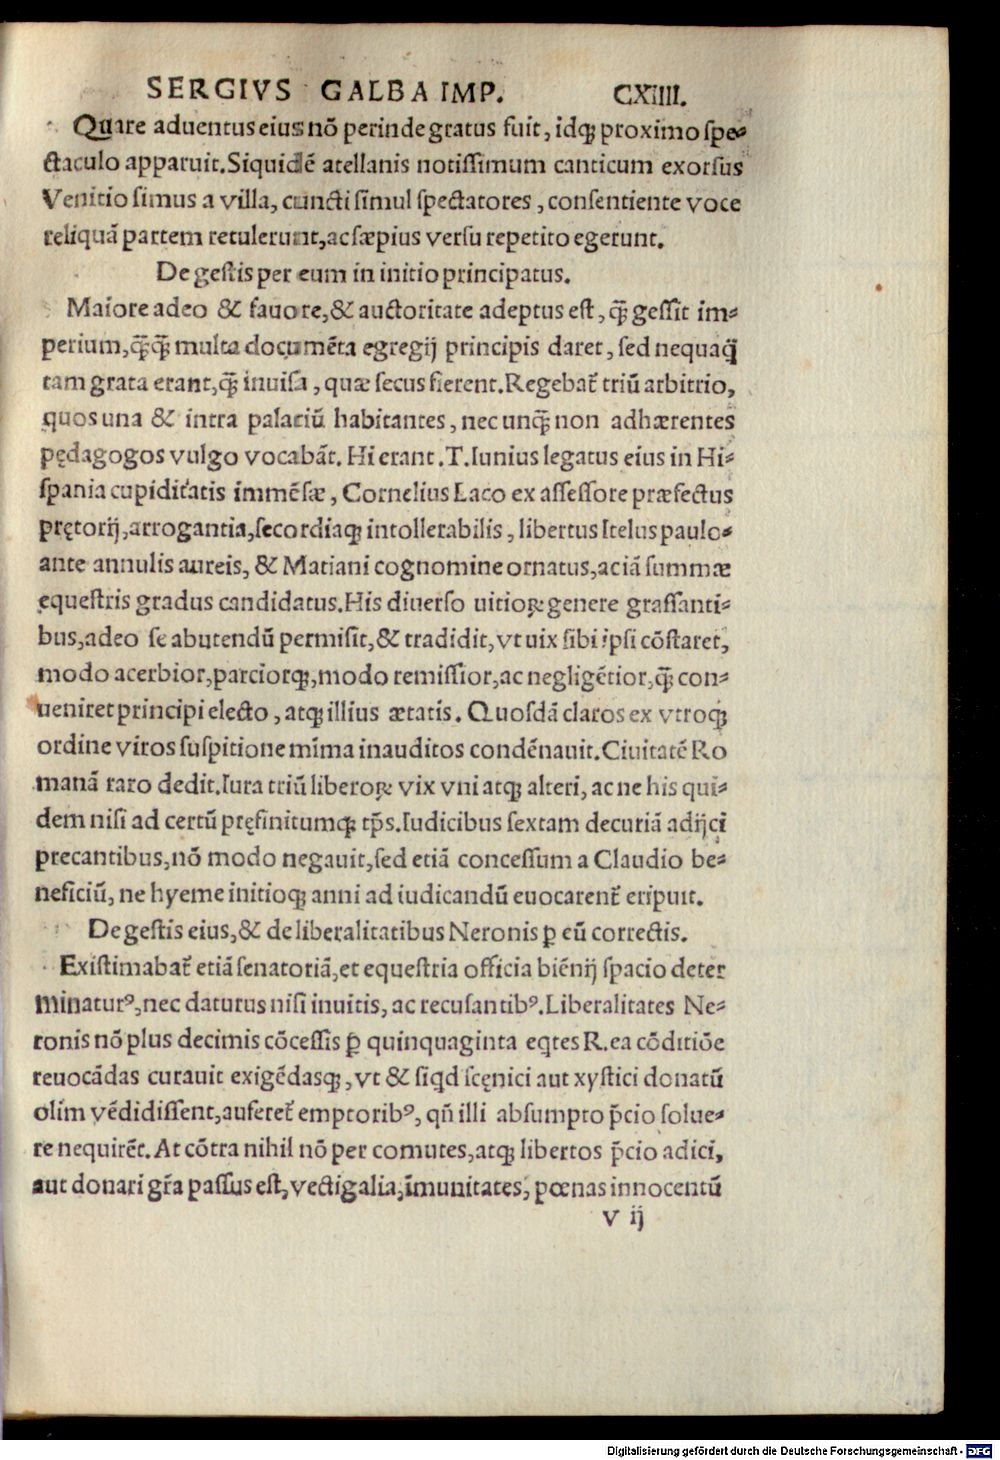 SERGIVS GALBA IMP. CXIIII.
Quare aduentus eius nō perinde gratus fuit, idq; proximo spe-
ctaculo apparuit. Siquidē atellanis notissimum canticum exorsus
Venitio simus a villa, cuncti simul spectatores, consentiente voce
reliquā partem retulerunt, ac sæpius versu repetito egerunt.
De gestis per eum in initio principatus.
Maiore adeo & fauore, & auctoritate adeptus est, q̄ gessit im-
perium, q̄q̄ multa documēta egregij principis daret, sed nequaq̄
tam grata erant, q̄ inuisa, quæ secus fierent. Regebat̃ triū arbitrio,
quos una & intra palatiū habitantes, nec unq̄ non adhærentes
pędagogos vulgo vocabāt. Hi erant. T. Iunius legatus eius in Hi-
spania cupiditatis immēsæ, Cornelius Laco ex assessore præfectus
prętorij, arrogantia, secordiaq; intollerabilis, libertus Icelus paulo-
ante annulis aureis, & Matiani cognomine ornatus, ac iā summæ
equestris gradus candidatus. His diuerso uitioꝝ genere grassanti-
bus, adeo se abutendū permisit, & tradidit, vt uix sibi ipsi cōstaret,
modo acerbior, parciorq;, modo remissior, ac negligētior, q̄ con-
ueniret principi electo, atq; illius ætatis. Quosdā claros ex vtroq;
ordine viros suspitione mima inauditos condēnauit. Ciuitatē Ro
manā raro dedit. Iura triū liberoꝝ vix vni atq; alteri, ac ne his qui-
dem nisi ad certū pręfinitumq; tp̄s. Iudicibus sextam decuriā adijci
precantibus, nō modo negauit, sed etiā concessum a Claudio be-
neficiū, ne hyeme initioq; anni ad iudicandū euocarent̃ eripuit.
De gestis eius, & de liberalitatibus Neronis p̲ eū correctis.
Existimabat̃ etiā senatoriā, et equestria officia biēnij spacio deter
minaturꝰ, nec daturus nisi inuitis, ac recusantibꝰ. Liberalitates Ne-
ronis nō plus decimis cōcessis p̲ quinquaginta eq̃tes R. ea cōditiōe
reuocādas curauit exigēdasq;, vt & siqd scęnici aut xystici donatū
olim vēdidissent, auferet̃ emptoribꝰ, qñ illi absumpto p̄cio solue-
re nequirēt. At cōtra nihil nō per comutes, atq; libertos p̄cio adici,
aut donari gr̄a passus est, vectigalia, īmunitates, pœnas innocentū
V ij
Digitalisierung gefördert durch die Deutsche Forschungsgemeinschaft - DFG